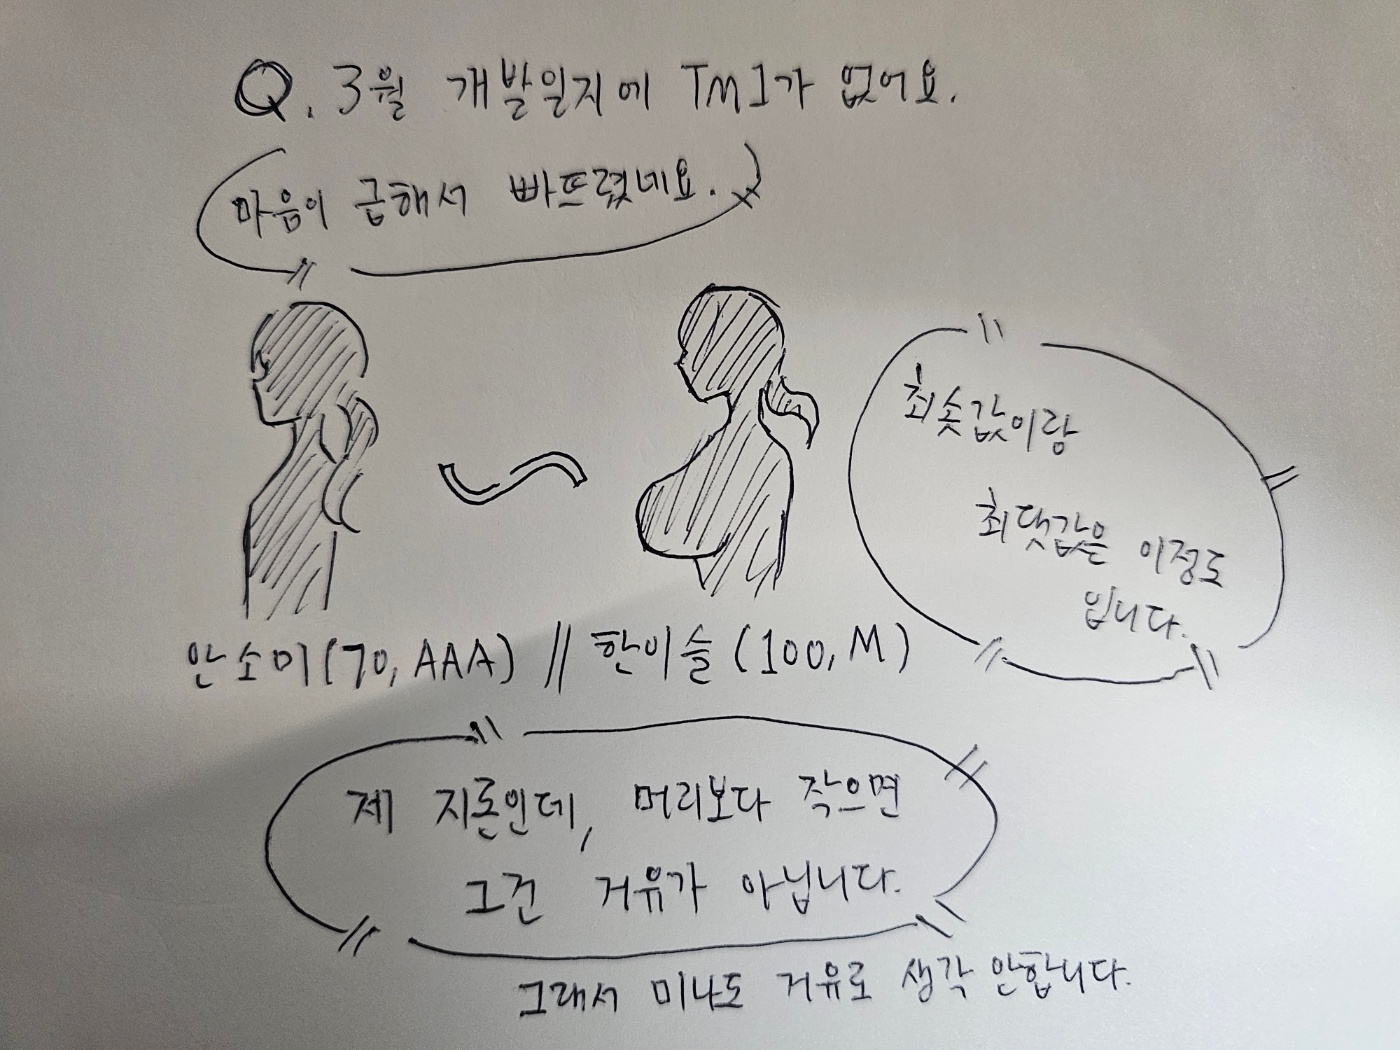 Q. 3월 개발일지에 TMI가 없어요.
마음이 급해서 빠뜨렸네요.
최솟값이랑
최댓값은 이정도
입니다.
안소미(70, AAA) // 한이슬(100, M)
제 지론인데, 머리보다 작으면
그건 거유가 아닙니다.
그래서 미나도 거유로 생각 안합니다.